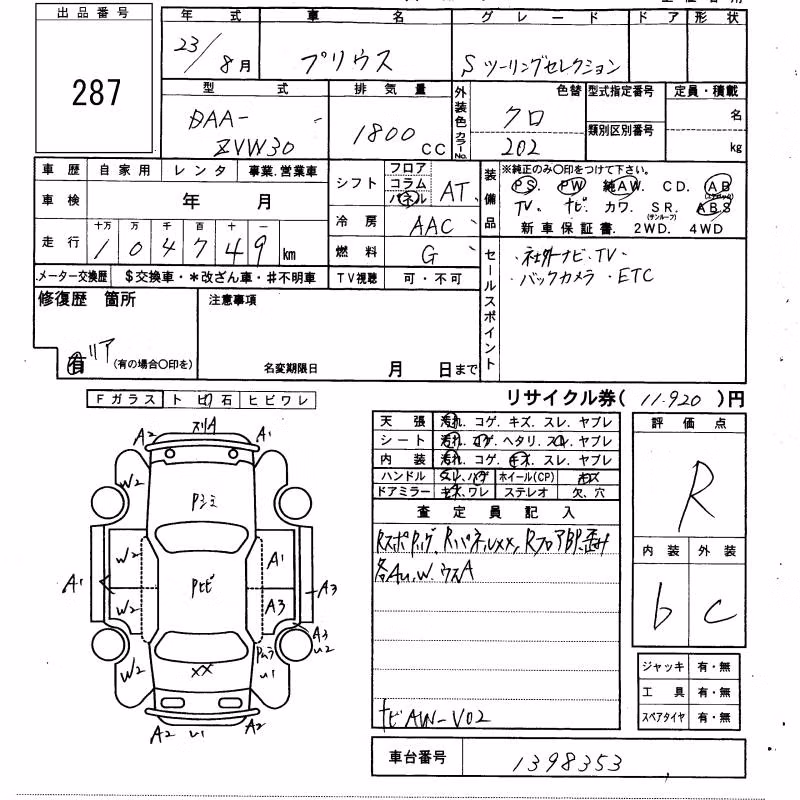 出品番号
287
年式 車名 グレード ドア 形状
23/8月 プリウス S ツーリングセレクション
型式 排気量 外装色 色替 型式指定番号 定員・積載
DAA-
ZVW30 1800 CC カラーNo. クロ 202 類別区別番号 名
kg
車歴 自家用 レンタ 事業.営業車
車検 年 月
走行 十万 万 千 百 十 一
1 0 4 7 4 9 km
メーター交換歴 $交換車・*改ざん車・#不明車
シフト フロア コラム パネル AT
冷房 AAC
燃料 G
TV視聴 可・不可
装備品 ※純正のみ〇印をつけて下さい。
PS. PW 純AW. CD. AB
(エアバッグ)
TV. ナビ. カワ. SR. ABS
(サンルーフ)
新車保証書. 2WD. 4WD
セールスポイント
・社外ナビ・TV・
・バックカメラ・ETC
修復歴 箇所 注意事項
有 リア (有の場合〇印を)
名変期限日 月 日まで
リサイクル券( 11.920 )円
Fガラス トビ石 ヒビワレ
天張 汚れ. コゲ. キズ. スレ. ヤブレ
シート 汚れ. コゲ. ヘタリ. スレ. ヤブレ
内装 汚れ. コゲ. キズ. スレ. ヤブレ
ハンドル スレ. ハゲ ホイール(CP) キズ
ドアミラー キズ.ワレ ステレオ 欠.穴
査定員記入
各A.u.W. ウスA
ナビAW-V02
評価点
R
内装 外装
b C
ジャッキ 有・無
工具 有・無
スペアタイヤ 有・無
A2 スリA A1
W2
Pシミ
W2 A1
A1 Pヒビ A3
W2 A3
A3
u2
W2 XX Pムラ
u1
A2 u1 A2
車台番号 1398353